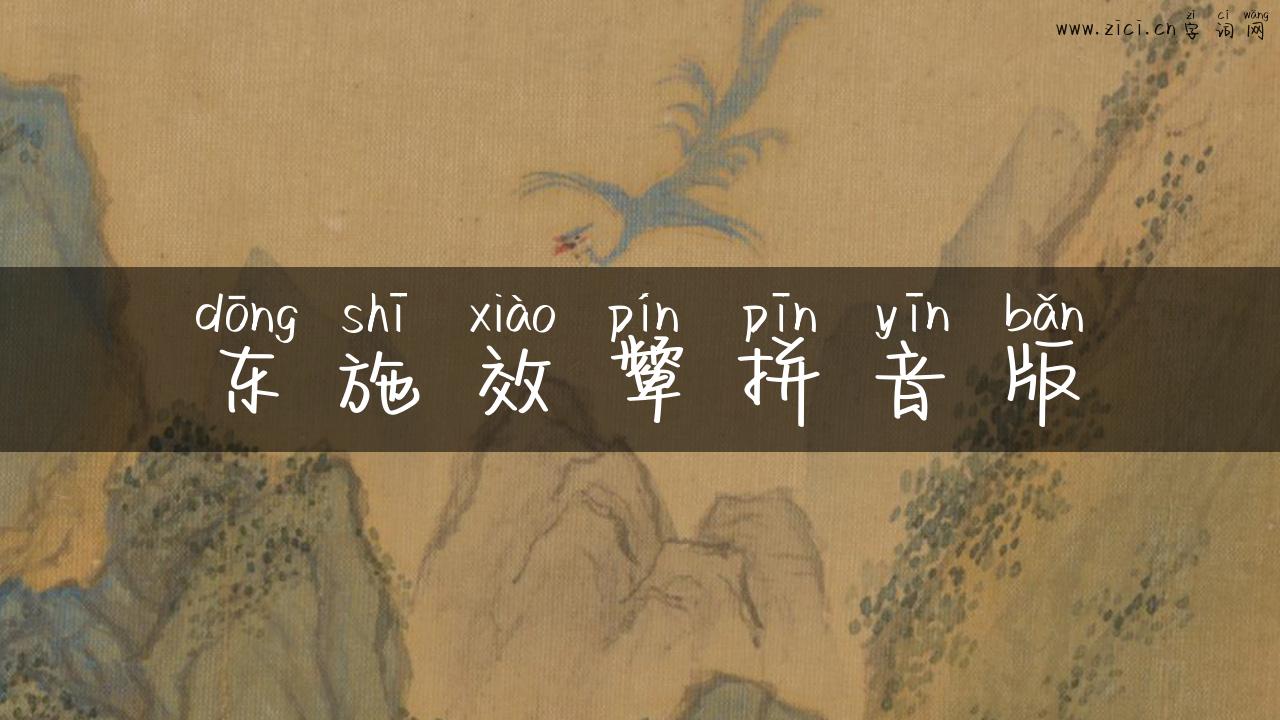 zì cí wǎng
www.zici.cn字词网
dōng shī xiào pín pīn yīn bǎn
东施效颦拼音版